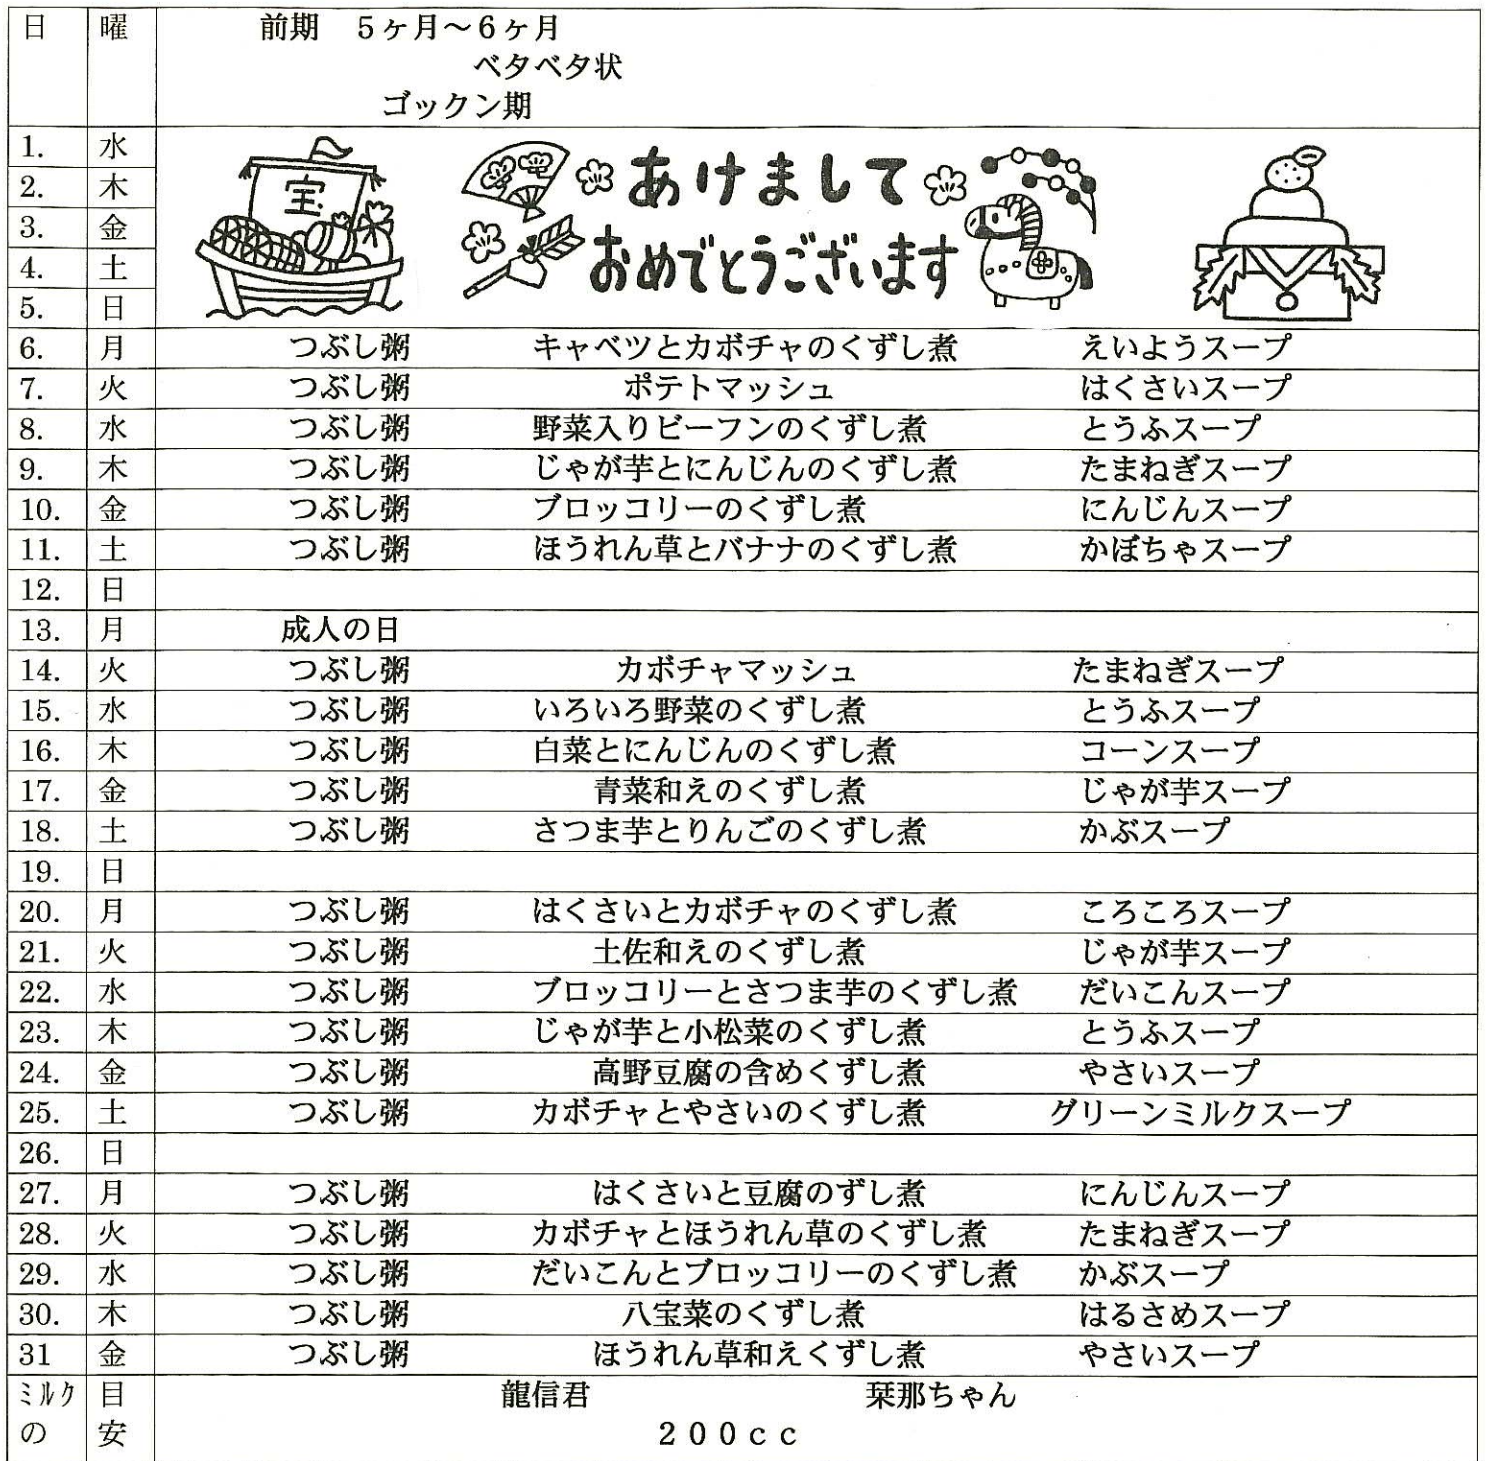 日 曜 前期 5ヶ月～6ヶ月
ベタベタ状
ゴックン期
1. 水
2. 木
3. 金
4. 土
5. 日
宝
あけまして
おめでとうございます
6. 月 つぶし粥 キャベツとカボチャのくずし煮 えいようスープ
7. 火 つぶし粥 ポテトマッシュ はくさいスープ
8. 水 つぶし粥 野菜入りビーフンのくずし煮 とうふスープ
9. 木 つぶし粥 じゃが芋とにんじんのくずし煮 たまねぎスープ
10. 金 つぶし粥 ブロッコリーのくずし煮 にんじんスープ
11. 土 つぶし粥 ほうれん草とバナナのくずし煮 かぼちゃスープ
12. 日
13. 月 成人の日
14. 火 つぶし粥 カボチャマッシュ たまねぎスープ
15. 水 つぶし粥 いろいろ野菜のくずし煮 とうふスープ
16. 木 つぶし粥 白菜とにんじんのくずし煮 コーンスープ
17. 金 つぶし粥 青菜和えのくずし煮 じゃが芋スープ
18. 土 つぶし粥 さつま芋とりんごのくずし煮 かぶスープ
19. 日
20. 月 つぶし粥 はくさいとカボチャのくずし煮 ころころスープ
21. 火 つぶし粥 土佐和えのくずし煮 じゃが芋スープ
22. 水 つぶし粥 ブロッコリーとさつま芋のくずし煮 だいこんスープ
23. 木 つぶし粥 じゃが芋と小松菜のくずし煮 とうふスープ
24. 金 つぶし粥 高野豆腐の含めくずし煮 やさいスープ
25. 土 つぶし粥 カボチャとやさいのくずし煮 グリーンミルクスープ
26. 日
27. 月 つぶし粥 はくさいと豆腐のずし煮 にんじんスープ
28. 火 つぶし粥 カボチャとほうれん草のくずし煮 たまねぎスープ
29. 水 つぶし粥 だいこんとブロッコリーのくずし煮 かぶスープ
30. 木 つぶし粥 八宝菜のくずし煮 はるさめスープ
31 金 つぶし粥 ほうれん草和えくずし煮 やさいスープ
ミルク 目 龍信君 栞那ちゃん
の 安 200cc